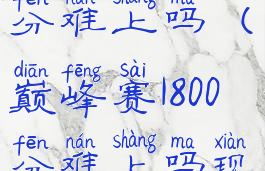 fēn nán shàng ma
分难上吗（
diān fēng sài
巅峰赛1800
fēn nán shàng ma xiàn
分难上吗现